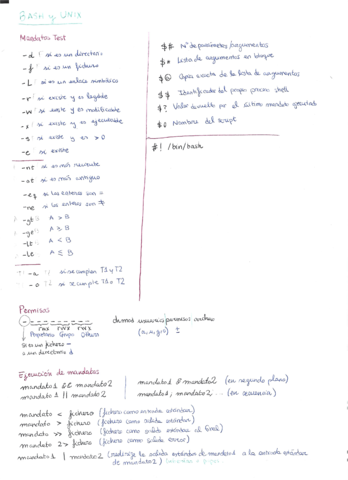 BASH y UNIX
Mandatos Test
-d si es un directori
-f si es un fichero
-L si es un enlace simbólico
-r si existe y es legible
-w si existe y es modificable
-x si existe y es ejecutable
-s si existe y es > 0
-e si existe
-nt si es más reciente
-ot si es más antiguo
-eq si los enteros son =
-ne si los enteros son ≠
-gt A > B
-ge A ≥ B
-lt A < B
-le A ≤ B
T1 -a T2 si se cumplen T1 y T2
-o si se cumple T1 o T2
$# Nº de parámetros/argumentos
$* Lista de argumentos en bloque
$@ Copia exacta de la lista de argumentos
$$ Identificador del propio proceso shell
$? Valor devuelto por el último mandato ejecutado
$0 Nombre del script
#! /bin/bash
Permisos
rwx rwx rwx
Propietario Grupo Otros
si es un fichero -
o un directorio d
chmod usuarios permisos archivo
(a,u,g,o) ±
Ejecución de mandatos
mandato1 && mandato2
mandato1 || mandato2
mandato1 & mandato2 (en segundo plano)
mandato1; mandato2... (en secuencia)
mandato < fichero (fichero como entrada estándar)
mandato > fichero (fichero como salida estándar)
mandato >> fichero (fichero como salida estándar al final)
mandato 2> fichero (fichero como salida error)
mandato1 | mandato2 (redirige la salida estándar de mandato1 a la entrada estándar
de mandato2)